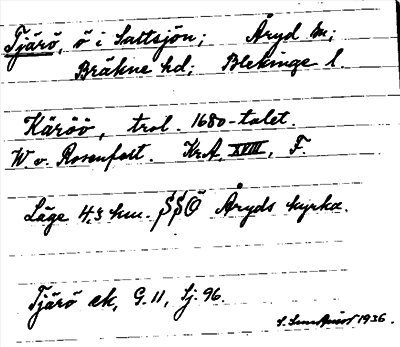 Tjärö, ö i Saltsjön; Åryd sn;
Bräkne hd; Blekinge l.
Käröö, trol. 1680-talet.
W v. Rosenfelt. KrA, XVIII, F.
Läge 4,3 km. SSÖ Åryds kyrka.
Tjärö ek, G. 11, Sj. 96.
1936.